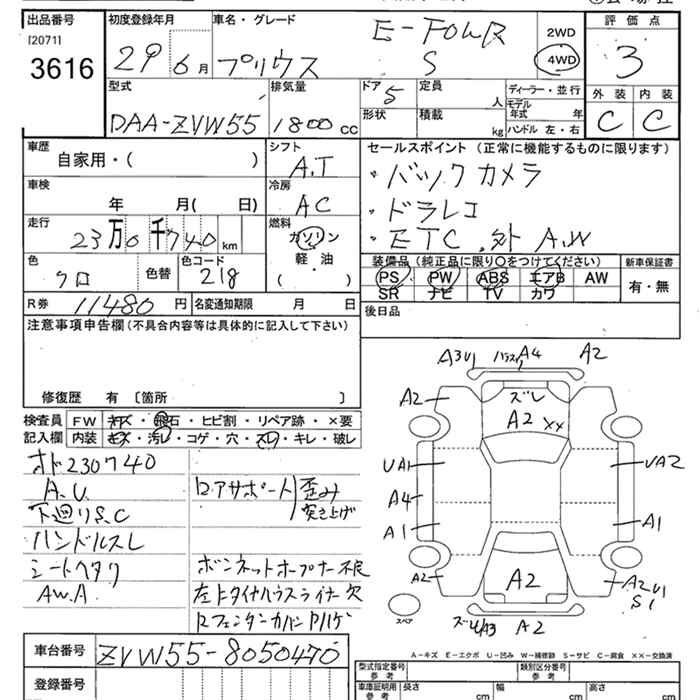 出品番号 初度登録年月 車名・グレード 評価点
[2071]
3616
29 6月 プリウス E-FOUR S 2WD 4WD 3
型式 排気量 ドア 定員 ディーラー・並行 外装 内装
DAA-ZVW55 1800 cc 5 人 モデル年式 年 C C
形状 積載 kg ハンドル 左・右
車歴 シフト セールスポイント (正常に機能するものに限ります)
自家用・( ) A.T ・バックカメラ
車検 冷房
年 月( 日) AC ・ドラレコ
走行 燃料
23万0千740km ガソリン ・ETC.外A.W
軽・油
( )
色 色替 色コード 装備品(純正品に限り○をつけてください) 新車保証書
クロ 218 PS PW ABS エアB AW 有・無
SR ナビ TV カワ
R券 11480円 名変通知期限 月 日 後日品
注意事項申告欄(不具合内容等は具体的に記入して下さい)
修復歴 有〔箇所 〕
検査員 FW キズ・飛石・ヒビ割・リペア跡・×要
記入欄 内装 キズ・汚レ・コゲ・穴・スレ・キレ・破レ
オド230740
A.U.
下廻りS.C
ハンドルスレ
シートヘタリ
AW.A
ロアサポート 歪み 突き上げ
ボンネットオープナー不良
左トタイヤハウスライナー欠
Rフェンダーカバー
A3U1 A4 A2
A2 ズレ
A2 ××
UA1 UA2
A4
A1 A1
A2 A2 A2U1
S1
スペア A3 A2
A-キズ E-エクボ U-凹み W-補修跡 S-サビ C-腐食 XX-交換済
車台番号 ZVW55-8050470
登録番号
型式指定番号 参考 類別区分番号 参考
車庫証明用 参考 長さ cm 幅 cm 高さ cm